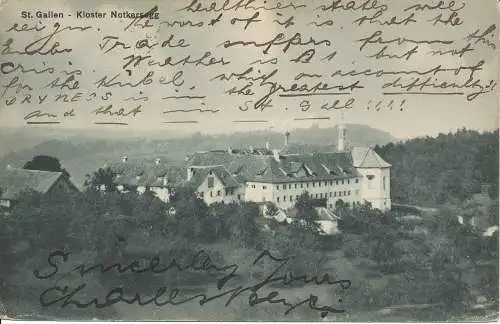 St. Gallen - Kloster Notkersegg
healthier state well
The worst of it is that the
reign
Trade suffers from this
crisis. Weather is but not
for the Knbel which on account of
DRYNESS is the greatest difficulty
and that in St Gall !!!!
Sincerely Yours
Charles